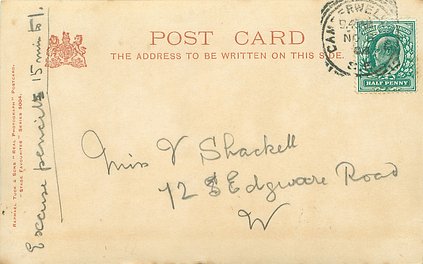 POST CARD
THE ADDRESS TO BE WRITTEN ON THIS SIDE.
CAMBERWELL
HALF PENNY
Miss V Shackell
72 Edgware Road
W
Excuse pencil 15 min to 1.
RAPHAEL TUCK & SONS' "REAL PHOTOGRAPH" POSTCARD.
STAGE FAVOURITES SERIES 5004.